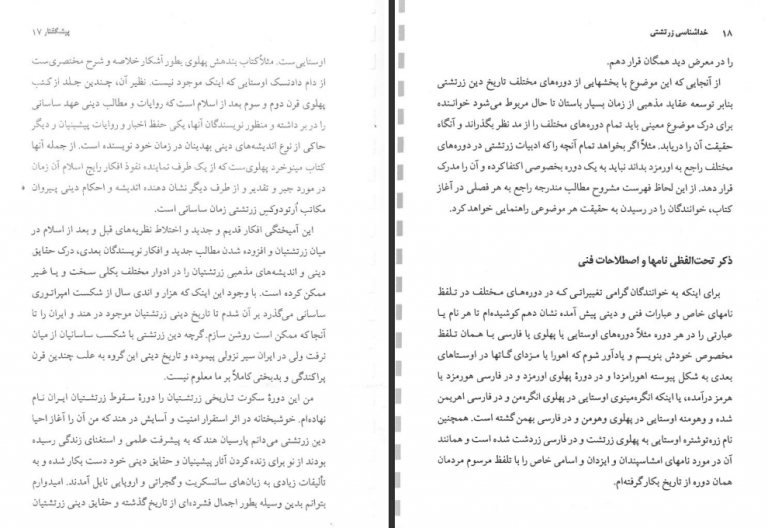 پیشگفتار ۱۷
اوستایی‌ست. مثلاً کتاب بندهش پهلوی بطور آشکار خلاصه و شرح مختصری‌ست
از دام دادنسک اوستایی که اینک موجود نیست. نظیر آن، چندین جلد از کتب
پهلوی قرن دوم و سوم بعد از اسلام است که روایات و مطالب دینی عهد ساسانی
را در بر داشته و منظور نویسندگان آنها، یکی حفظ اخبار و روایات پیشینیان و دیگر
حاکی از نوع اندیشه‌های دینی بهدینان در زمان خود نویسنده است. از جمله آنها
کتاب مینوخرد پهلوی‌ست که از یک طرف نماینده نفوذ افکار رایج اسلام آن زمان
در مورد جبر و تقدیر و از طرف دیگر نشان دهنده اندیشه و احکام دینی پیروان
مکاتب اُرتودوکس زرتشتی زمان ساسانی است.
این آمیختگی افکار قدیم و جدید و اختلاط نظریه‌های قبل و بعد از اسلام در
میان زرتشتیان و افزوده شدن مطالب جدید و افکار نویسندگان بعدی، درک حقایق
دینی و اندیشه‌های مذهبی زرتشتیان را در ادوار مختلف بکلی سخت و یا غیر
ممکن کرده است. با وجود این اینک که هزار و اندی سال از شکست امپراتوری
ساسانی می‌گذرد بر آن شدم تا تاریخ دینی زرتشتیان موجود در هند و ایران را تا
آنجا که ممکن است روشن سازم. گرچه دین زرتشتی با شکست ساسانیان از میان
نرفت ولی در ایران سیر نزولی پیموده و تاریخ دینی این گروه به علت چندین قرن
پراکندگی و بدبختی کاملاً بر ما معلوم نیست.
من این دورهٔ سکوت تاریخی زرتشتیان را دورهٔ سقوط زرتشتیان ایران نام
نهاده‌ام. خوشبختانه در اثر استقرار امنیت و آسایش در هند که من آن را آغاز احیا
دین زرتشتی می‌دانم پارسیان هند که به پیشرفت علمی و استغنای زندگی رسیده
بودند از نو برای زنده کردن آثار پیشینیان و حقایق دینی خود دست بکار شده و به
تألیفات زیادی به زبان‌های سانسکریت و گجراتی و اروپایی نایل آمدند. امیدوارم
بتوانم بدین وسیله بطور اجمال فشرده‌ای از تاریخ گذشته و حقایق دینی زرتشتیان
۱۸ خداشناسی زرتشتی
را در معرض دید همگان قرار دهم.
از آنجایی که این موضوع با بخشهایی از دوره‌های مختلف تاریخ دین زرتشتی
بنابر توسعه عقاید مذهبی از زمان بسیار باستان تا حال مربوط می‌شود خواننده
برای درک موضوع معینی باید تمام دوره‌های مختلف را از مد نظر بگذراند و آنگاه
حقیقت آن را دریابد. مثلاً اگر بخواهد تمام آنچه را که ادبیات زرتشتی در دوره‌های
مختلف راجع به اورمزد بداند نباید به یک دوره بخصوصی اکتفا کرده و آن را مدرک
قرار دهد. از این لحاظ فهرست مشروح مطالب مندرجه راجع به هر فصلی در آغاز
کتاب، خوانندگان را در رسیدن به حقیقت هر موضوعی راهنمایی خواهد کرد.
ذکر تحت‌اللفظی نامها و اصطلاحات فنی
برای اینکه به خوانندگان گرامی تغییراتی که در دوره‌های مختلف در تلفظ
نامهای خاص و عبارات فنی و دینی پیش آمده نشان دهم کوشیده‌ام تا هر نام یا
عبارتی را در هر دوره مثلاً دوره‌های اوستایی یا پهلوی یا فارسی با همان تلفظ
مخصوص خودش بنویسم و یادآور شوم که اهورا یا مزدای گاتها در اوستاهای
بعدی به شکل پیوسته اهورامزدا و در دورهٔ پهلوی اورمزد و در فارسی هورمزد یا
هرمز درآمده، یا اینکه انگره‌مینوی اوستایی در پهلوی انگره‌من و در فارسی اهریمن
شده و وهومنه اوستایی در پهلوی وهومن و در فارسی بهمن گشته است. همچنین
نام زره‌توشتره اوستایی به پهلوی زرتشت و در فارسی زردشت شده است و همانند
آن در مورد نامهای امشاسپندان و ایزدان و اسامی خاص را با تلفظ مرسوم مردمان
همان دوره از تاریخ بکار گرفته‌ام.